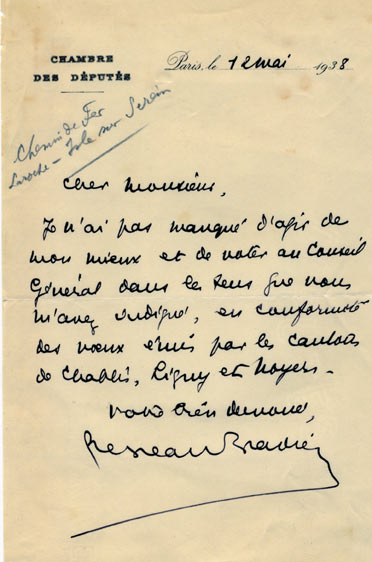 CHAMBRE
DES DÉPUTÉS
Paris, le 12 mai 1938
Chemin de Fer
Laroche - Isle sur Serein
Cher Monsieur,
Je n'ai pas manqué d'agir de
mon mieux et de voter au Conseil
Général dans le sens que vous
m'avez indiqué, en conformité
des vœux émis par les cantons
de Chablis, Ligny et Noyers.
Votre très dévoué,